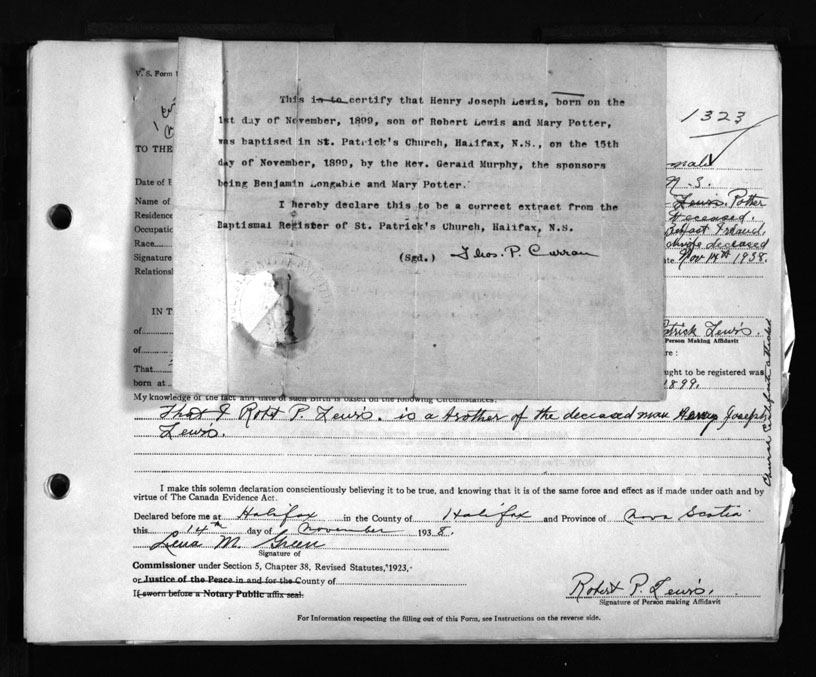 V. S. Form
This is to certify that Henry Joseph Lewis, born on the
1st day of November, 1899, son of Robert Lewis and Mary Potter,
was baptised in St. Patrick's Church, Halifax, N.S., on the 15th
day of November, 1899, by the Rev. Gerald Murphy, the sponsors
being Benjamin Longabie and Mary Potter.
I hereby declare this to be a correct extract from the
Baptismal Register of St. Patrick's Church, Halifax, N.S.
(Sgd.) Thos. P. Curran
1323
TO THE
male
Date of B
N.S.
Name of
Lewis Potter
Residence
deceased.
Occupatio
Belfast Ireland.
Race
single deceased
Signature
ate Nov 14th 1938.
Relations
IN T
of
atrick Lewis.
Person Making Affidavit
of
re :
That
ught to be registered was
born at
1899.
My knowledge of the fact and date of such Birth is based on the following Circumstances:
That I Robt P. Lewis. is a brother of the deceased man Henry Joseph
Lewis.
Church Certificate attached
I make this solemn declaration conscientiously believing it to be true, and knowing that it is of the same force and effect as if made under oath and by
virtue of The Canada Evidence Act.
Declared before me at Halifax in the County of Halifax and Province of Nova Scotia
this 14th day of November 1938.
Lena M. Green
Signature of
Commissioner under Section 5, Chapter 38, Revised Statutes, 1923,
or Justice of the Peace in and for the County of
If sworn before a Notary Public affix seal.
Robert P. Lewis.
Signature of Person making Affidavit
For Information respecting the filling out of this Form, see Instructions on the reverse side.